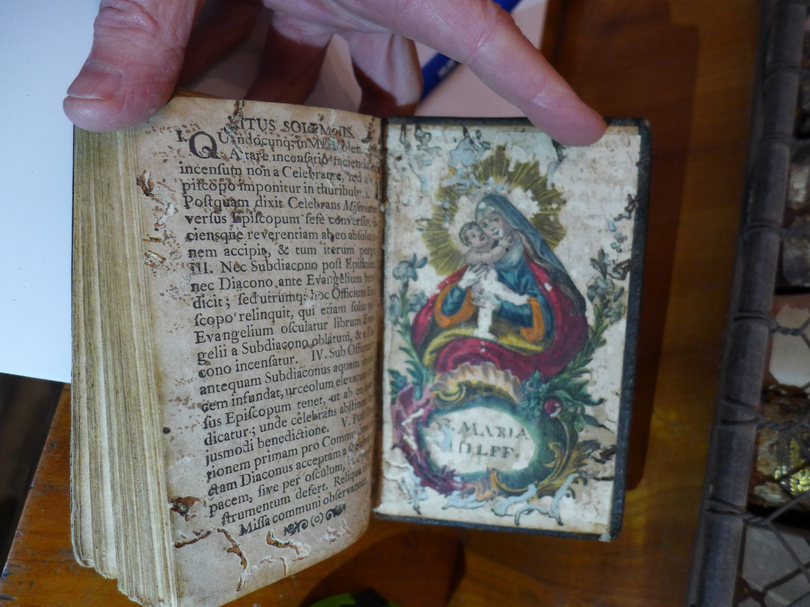 RITUS SOLEMNIS.
I. QUandocunque in Missa
Altare incensatio faciend
incensum non a Celebrante, sed a
piscopo imponitur in thuribulo. I
Postquam dixit Celebrans
versus Episcopum sese conversus,
ciensque reverentiam ab eo absolu
nem accipit, & tum iterum perg
III. Nec Subdiacono post Epist
nec Diacono ante Evangelium be
dicit; sed utrumq; hoc Officium
scopo relinquit, qui etiam solus
Evangelium osculatur librum
gelii a Subdiacono oblatum, & a
cono incensatur. IV. Sub Offert
antequam Subdiaconus aquam in
cem infundat, urceolum elevatum
sus Episcopum tenet, ut ab eo
dicatur; unde celebrans abstinet
jusmodi benedictione. V. Post
tionem primam pro Commun
ctam Diaconus acceptam a
pacem, sive per osculum, sive
strumentum defert. Reliqua
Missa communi observantur.
(o)
S. MARIA
HILFF.